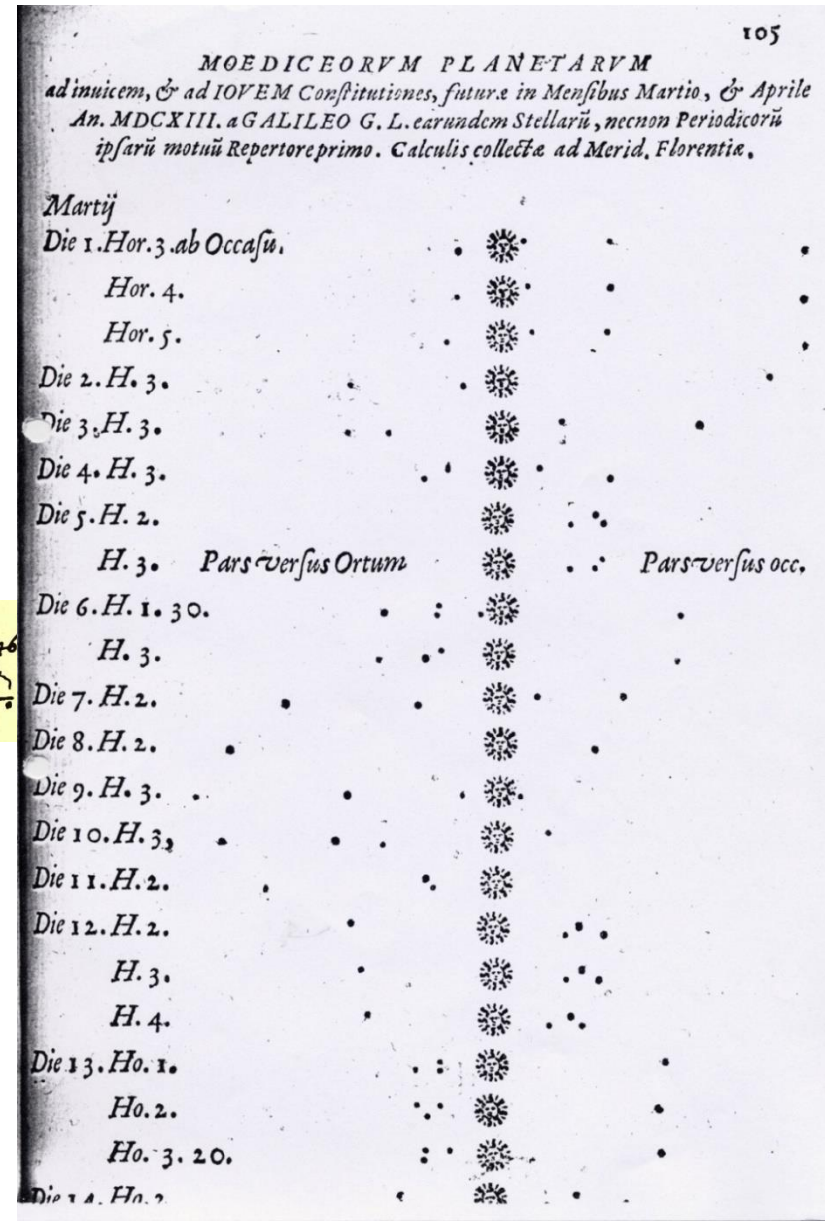 105
MOEDICEORVM PLANETARVM
ad inuicem, & ad IOVEM Conſtitutiones, futuræ in Menſibus Martio, & Aprile
An. MDCXIII. a GALILEO G. L. earundem Stellarũ, necnon Periodicorũ
ipſarũ motuũ Repertore primo. Calculis collectæ ad Merid. Florentiæ.
Martij
Die 1. Hor. 3. ab Occaſu.
Hor. 4.
Hor. 5.
Die 2. H. 3.
Die 3. H. 3.
Die 4. H. 3.
Die 5. H. 2.
H. 3. Pars verſus Ortum Pars verſus occ.
Die 6. H. 1. 30.
H. 3.
Die 7. H. 2.
Die 8. H. 2.
Die 9. H. 3.
Die 10. H. 3,
Die 11. H. 2.
Die 12. H. 2.
H. 3.
H. 4.
Die 13. Ho. 1.
Ho. 2.
Ho. 3. 20.
Die 14. Ho. 2